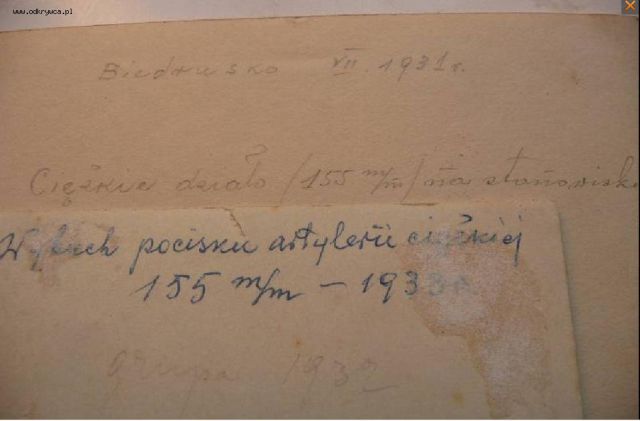 www.odkrywca.pl
Biedrusko VII. 1931 r.
Ciężkie działo /155 m/m/ na stanowisk
Wybuch pocisku artylerii ciężkiej
155 m/m – 1933
grupa 1932